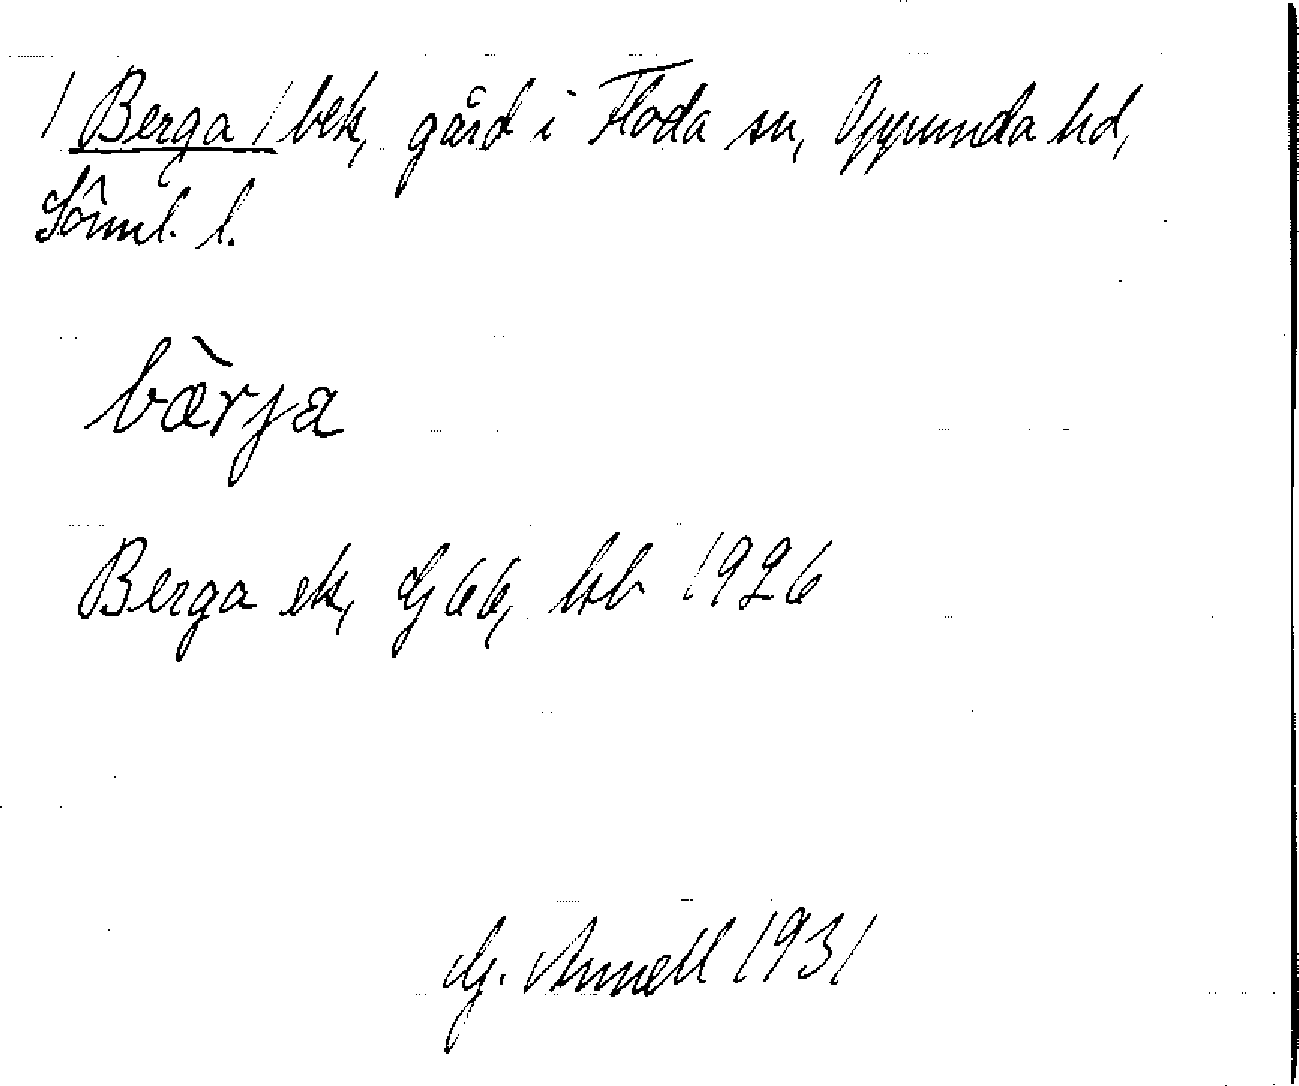 / Berga / bek, gård i Floda sn, Oppunda hd,
Söml. l.
bæ̀rja
Berga ek, G 66, lsb 1926
G. Annell 1931